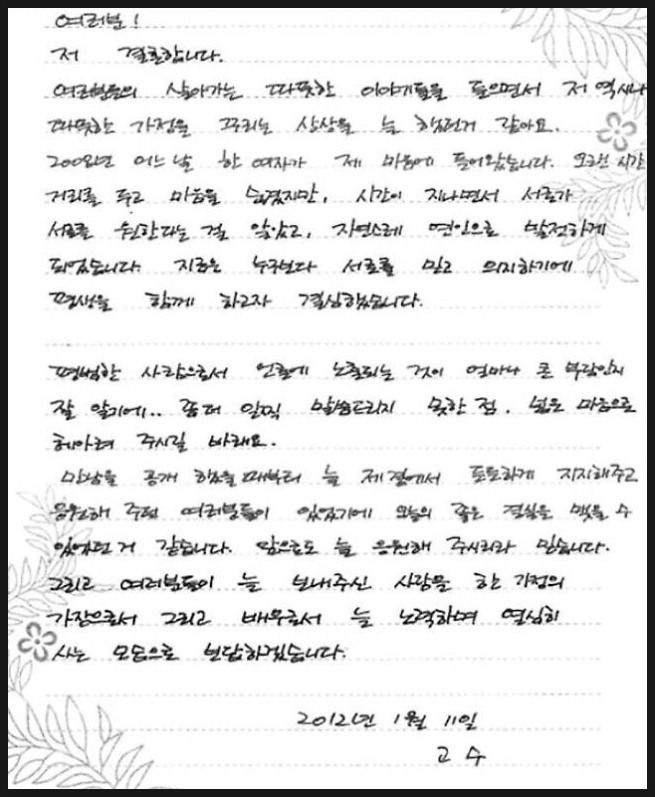 여러분!
저 결혼합니다.
여러분들의 살아가는 따뜻한 이야기들을 들으면서 저 역시나
따뜻한 가정을 꾸리는 상상을 늘 했던거 같아요.
2008년 어느날 한 여자가 제 마음에 들어왔습니다. 오랜 시간
거리를 두고 마음을 숨겼지만, 시간이 지나면서 서로가
서로를 원한다는 걸 알았고, 자연스레 연인으로 발전하게
되었습니다. 지금은 누구보다 서로를 믿고 의지하기에
평생을 함께 하고자 결심했습니다.
평범한 사람으로서 언론에 노출되는 것이 얼마나 큰 부담인지
잘 알기에.. 좀더 일찍 말씀드리지 못한 점. 넓은 마음으로
헤아려 주시길 바래요.
만남을 공개 했을때부터 늘 제곁에서 토토하게 지지해주고
응원해 주던 여러분들이 있었기에 오늘의 좋은 결실을 맺을 수
있었던거 같습니다. 앞으로도 늘 응원해 주시리라 믿습니다.
그리고 여러분들이 늘 보내주신 사랑을 한 가정의
가장으로서 그리고 배우로서 늘 노력하며 열심히
사는 모습으로 보답하겠습니다.
2012년 1월 11일
고 수